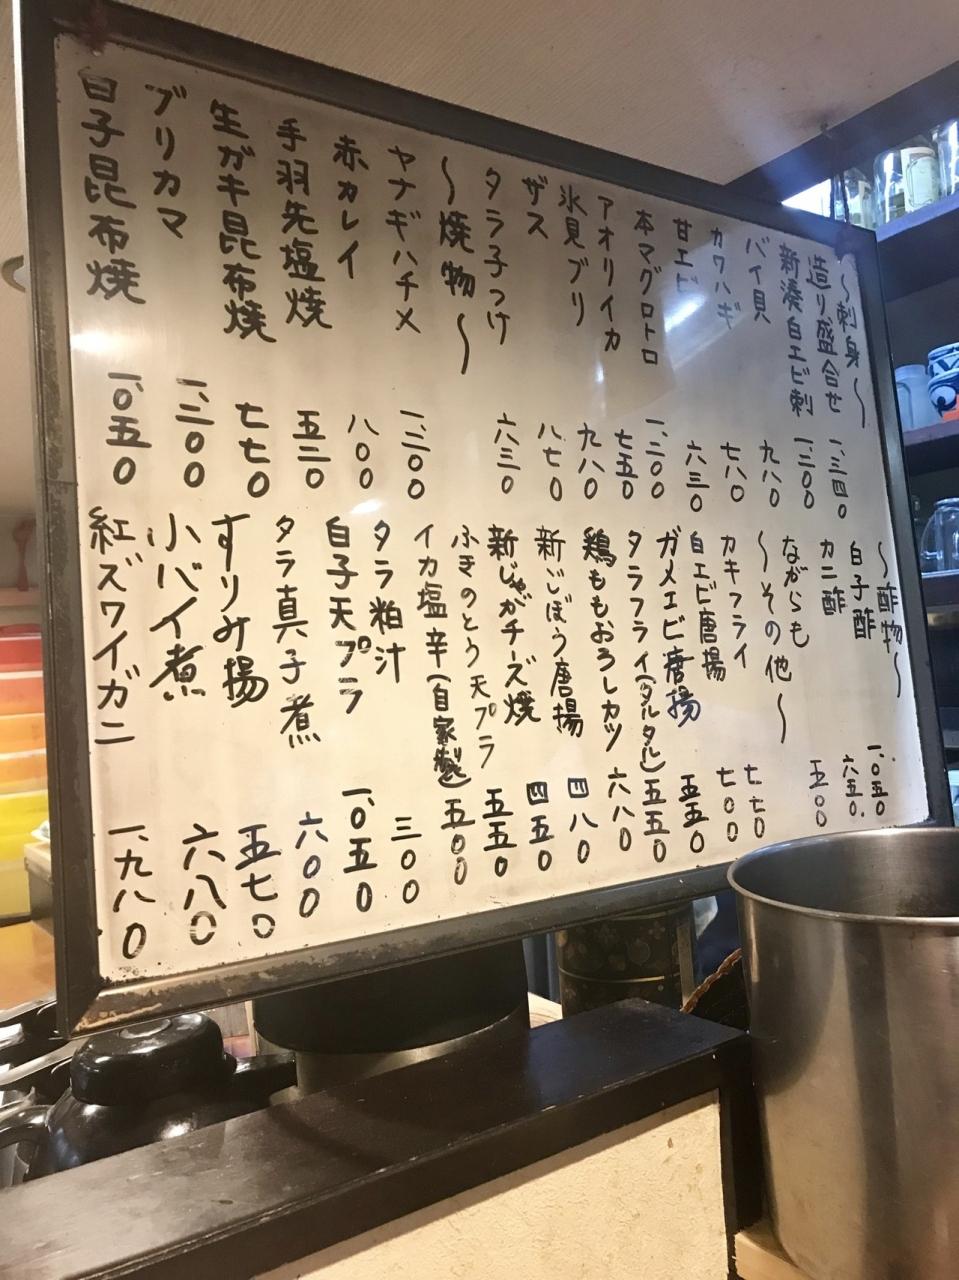 〜刺身〜
造り盛合せ 一、三四〇
新湊白エビ刺 一、三〇〇
バイ貝 九八〇
カワハギ 七八〇
甘エビ 六三〇
本マグロトロ 一、二〇〇
アオリイカ 七五〇
氷見ブリ 九八〇
ザス 八七〇
タラ子つけ 六三〇
〜焼物〜
ヤナギハチメ 一、二〇〇
赤カレイ 八〇〇
手羽先塩焼 五二〇
生ガキ昆布焼 七七〇
ブリカマ 一、二〇〇
白子昆布焼 一、〇五〇
〜酢物〜
白子酢 一、〇五〇
カニ酢 六五〇
ながらも 五〇〇
〜その他〜
カキフライ 七七〇
白エビ唐揚 七〇〇
ガメエビ唐揚 五五〇
タラフライ(タルタル) 五五〇
鶏ももおろしカツ 六八〇
新ごぼう唐揚 四八〇
新じゃがチーズ焼 四五〇
ふきのとう天プラ 五五〇
イカ塩辛(自家製) 五〇〇
タラ粕汁 三〇〇
白子天プラ 一、〇五〇
タラ真子煮 六〇〇
すりみ揚 五七〇
小バイ煮 六八〇
紅ズワイガニ 一、九八〇